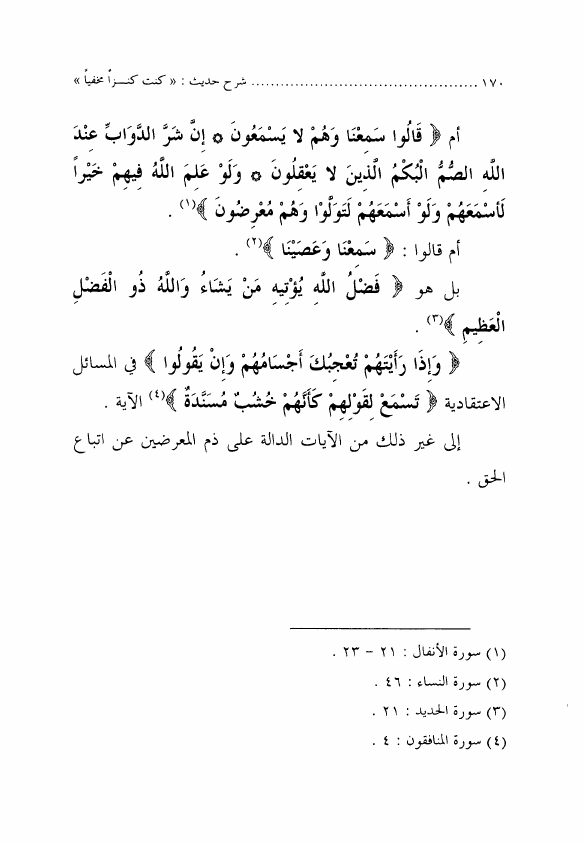 ١٧٠ ............................................... شرح حديث : « كنت كنـزاً مخفياً »
أم ﴿ قَالُوا سَمِعْنَا وَهُمْ لا يَسْمَعُونَ * إِنَّ شَرَّ الدَّوَابِّ عِنْدَ
اللَّهِ الصُّمُّ الْبُكْمُ الَّذِينَ لا يَعْقِلُونَ * وَلَوْ عَلِمَ اللَّهُ فِيهِمْ خَيْراً
لَأَسْمَعَهُمْ وَلَوْ أَسْمَعَهُمْ لَتَوَلَّوْا وَهُمْ مُعْرِضُونَ ﴾(١) .
أم قالوا : ﴿ سَمِعْنَا وَعَصَيْنَا ﴾(٢) .
بل هو ﴿ فَضْلُ اللَّهِ يُؤْتِيهِ مَنْ يَشَاءُ وَاللَّهُ ذُو الْفَضْلِ
الْعَظِيمِ ﴾(٣) .
﴿ وَإِذَا رَأَيْتَهُمْ تُعْجِبُكَ أَجْسَامُهُمْ وَإِنْ يَقُولُوا ﴾ في المسائل
الاعتقادية ﴿ تَسْمَعْ لِقَوْلِهِمْ كَأَنَّهُمْ خُشُبٌ مُسَنَّدَةٌ ﴾(٤) الآية .
إلى غير ذلك من الآيات الدالة على ذم المعرضين عن اتباع
الحق .
(١) سورة الأنفال : ٢١ - ٢٣ .
(٢) سورة النساء : ٤٦ .
(٣) سورة الحديد : ٢١ .
(٤) سورة المنافقون : ٤ .